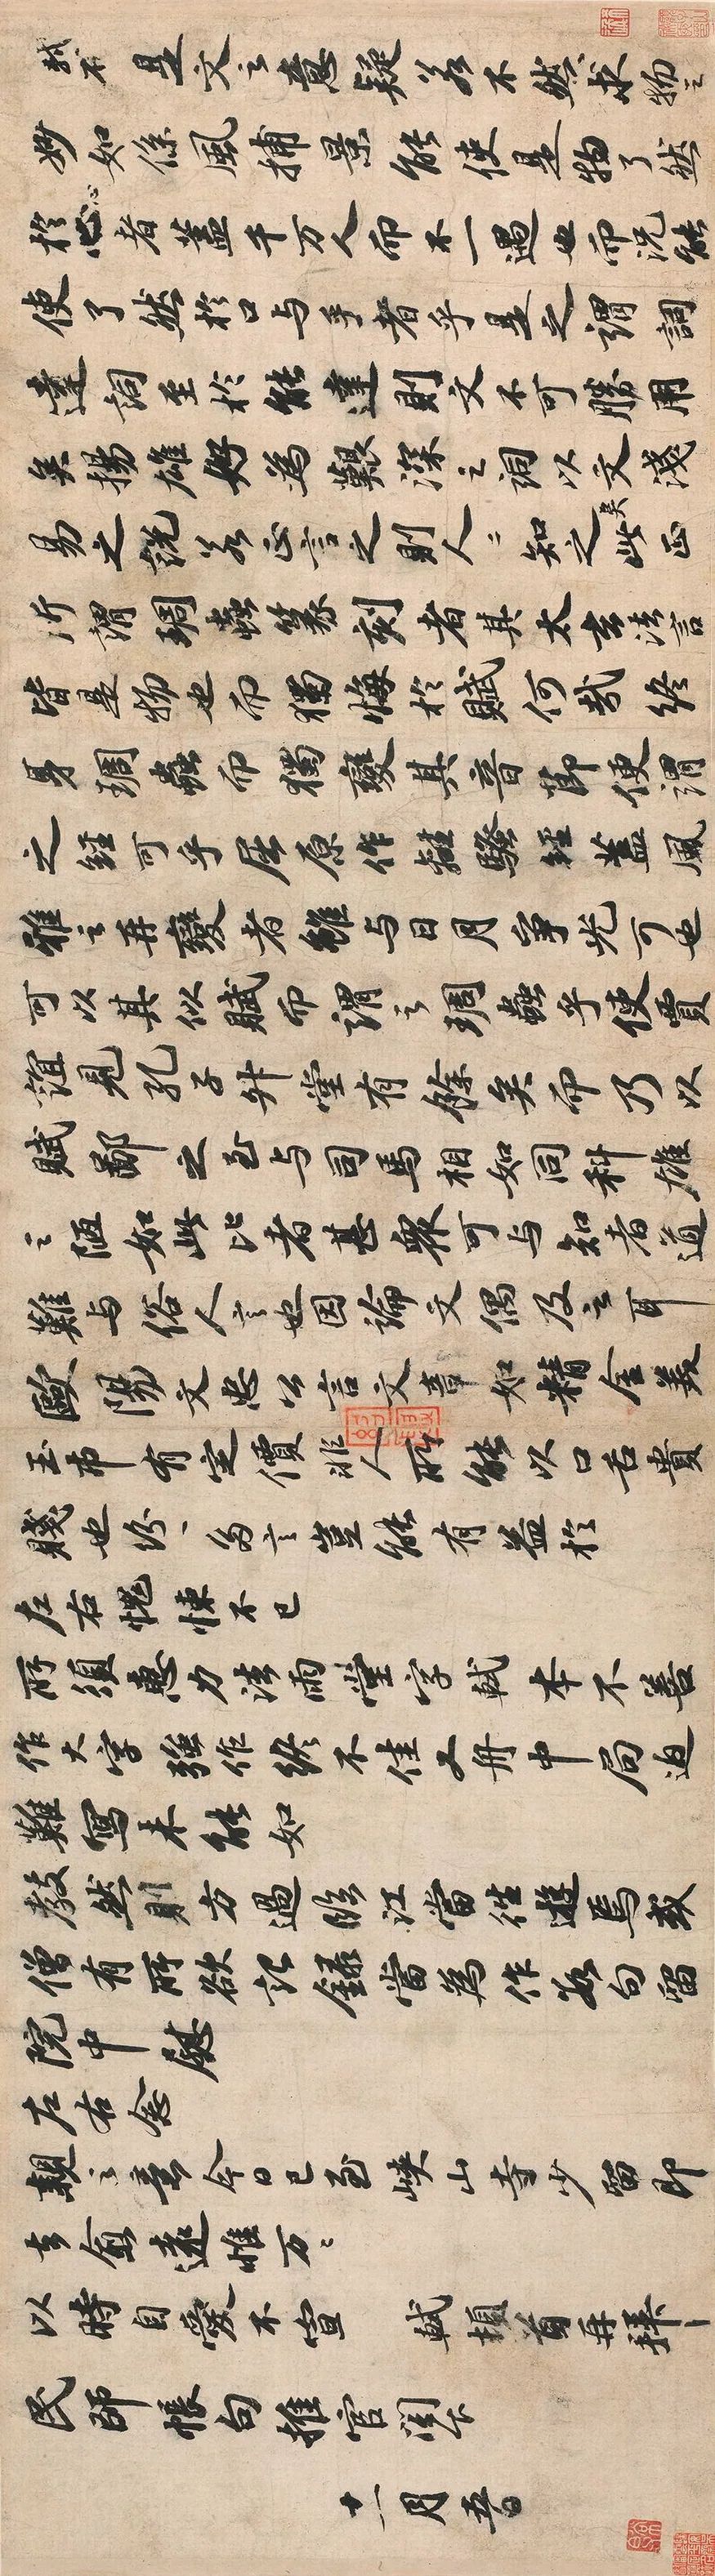 哉不是文之意疑若不然求物之
妙如係風捕景能使是物了然
於心者蓋千万人而不一遇也而況能
使了然於口与手者乎是之謂詞
達詞至於能達則文不可勝用
矣揚雄好為艱深之詞以文淺
易之說若正言之則人〻知之矣此正
所謂琱蟲篆刻者其太玄法言
皆是物也而獨悔於賦何哉終
身琱蟲而獨變其音節便謂
之經可乎屈原作離騷經蓋風
雅之再變者雖与日月爭光可也
可以其似賦而謂之琱蟲乎使賈
誼見孔子升堂有餘矣而乃以
賦鄙之至与司馬相如同科雄
之陋如此比者甚眾可与知者道
難与俗人言也因論文偶及之耳
歐陽文忠公言文章如精金美
玉市有定價非人所能以口舌貴
賤也紛〻多言豈能有益於
左右愧悚不已
所須惠力法雨堂字軾本不善
作大字強作終不佳又舟中局迫
難寫未能如
教然則方過臨江當往遊焉或
僧有所欲記錄當為作數句留
院中慰
左右念
親之意今日已至峽山寺少留即
去愈遠惟万〻
以時自愛不宣 軾頓首再拜
民師帳句推官閣下
十一月五日